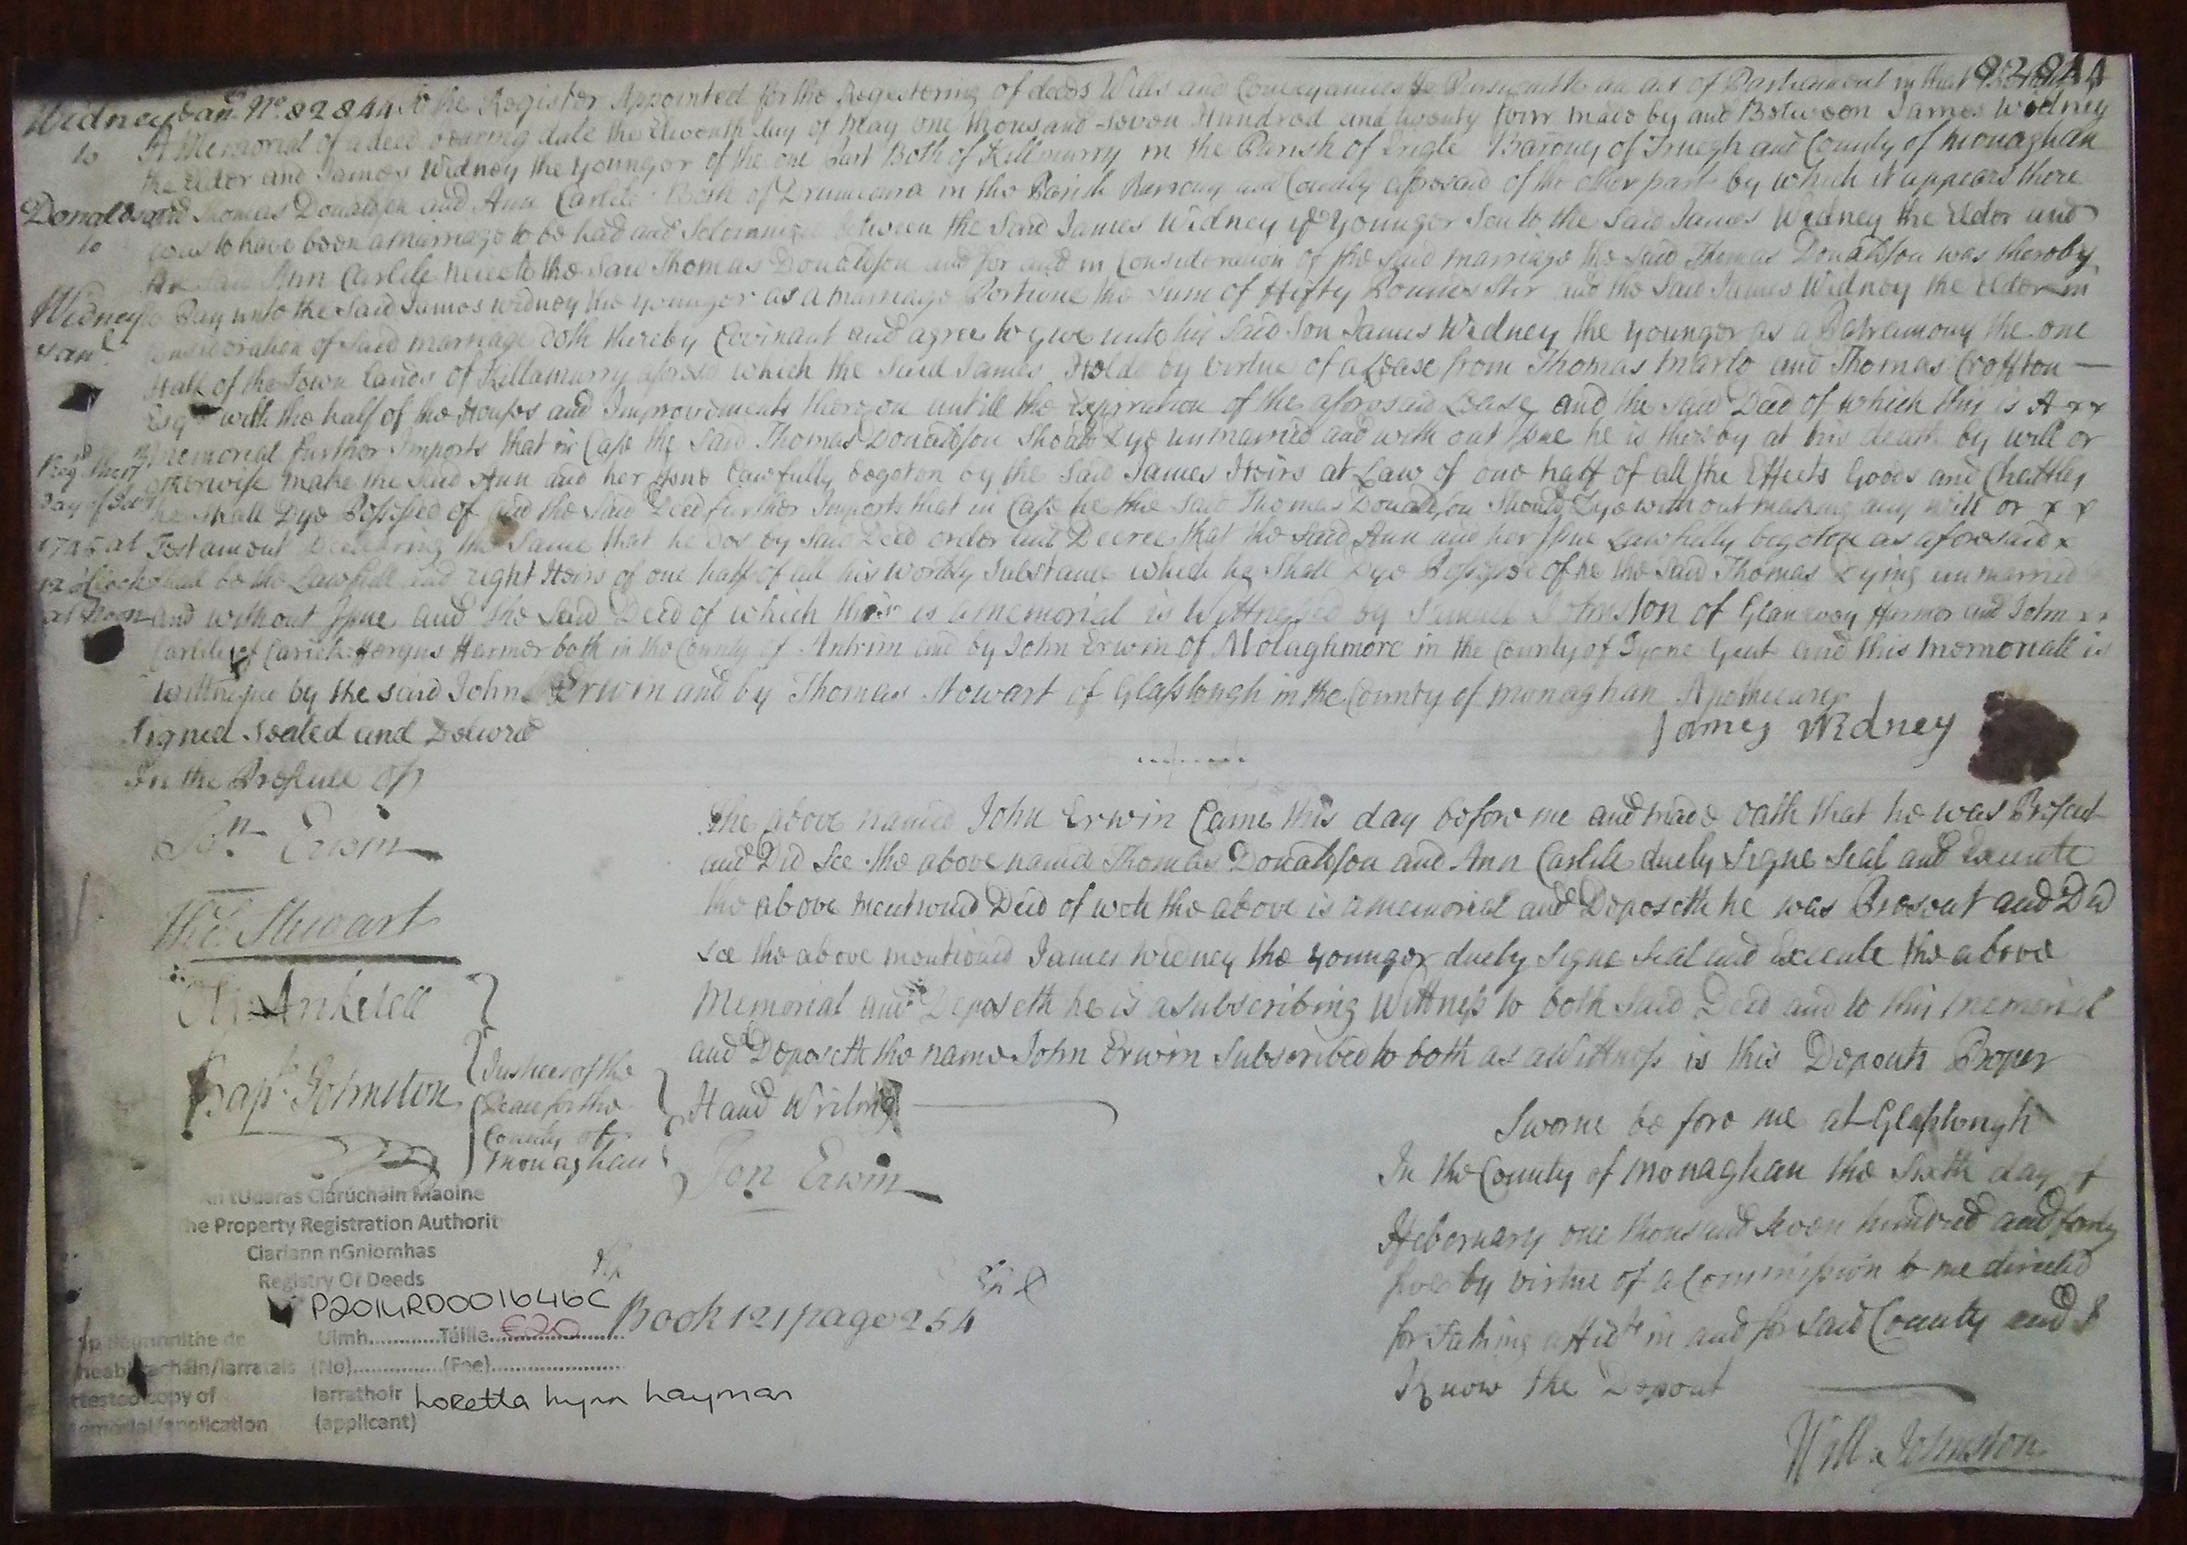 82844
Widney & an.r No. 82844 To the Register Appointed for the Registering of deeds Wills and Conveyances &c Pursuant to an act of Parliament in that
to A Memorial of a deed bearing date the Eleventh day of May one thousand seven Hundred and twenty four made by and Between James Widney
the Elder and James Widney the younger of the one part Both of Killmurry in the Parish of Erigle Barroney of Truegh and County of Monaghan
Donaldson and Thomas Donaldson and Ann Carlile Both of in the Parish Barrony and County aforesaid of the other part by which it appears there
to was to have been a marriage to be had and Solemnized between the Said James Widney ye Younger Son to the Said James Widney the Elder and
the Said Ann Carlile neice to the Said Thomas Donaldson and for and in Consideration of the Said marriage the Said Thomas Donaldson was thereby
Widney to Pay unto the Said James Widney the younger as a marriage Portione the Sum of ffifty Pounds Ster and the Said James Widney the Elder in
& an.r Consideration of Said marriage doth thereby Covinant and agree to give unto his Said Son James Widney the younger as a Patremony the one
Half of the Town Lands of Killamurry aforesd which the Said James Holds by virtue of a Lease from Thomas and Thomas Croffton
Esqrs with the half of the Houses and Improvements thereon untill the Expiration of the aforesaid Lease and the said Deed of which this is A x x
Memorial further Imports that in Case the Said Thomas Donaldson Should Dye unmarried and with out Issue he is thereby at his death by will or
otherwise make the Said Ann and her Issue Lawfully begoten by the Said James Heirs at Law of one half of all the Effects Goods and Chattles
day of he Shall Dye Possessed of and the Said Deed further Imports that in Case he the Said Thomas Donaldson Should Dye without making any will or x x
1745 at Testament Declaring the Same that he dos by Said Deed order and Decree that the Said Ann and her Issue Lawfully begoten as aforesaid x
12 oClock Shall be the Lawfull and right Heirs of one half of all his worldy Substance which he Shall Dye Possessed of he the Said Thomas Dying unmarried
at Noon and without Issue and the Said Deed of which this is a memorial is Wittnessed by Samuel Johnston of ffarmer and John x x
Carlile of Carickffergus ffarmer both in the County of Antrim and by John Erwin of Molaghmore in the County of Tyrone Gent and this memoriall is
wittnessed by the said John Erwin and by Thomas Stewart of Glasslough in the County of Monaghan Apothecary
Signed Sealed and Deliverd
James Widney
In the Presence of
Jon Erwin
Tho.s Stewart
Ankitell
Bapt Johnston
Justices of the
Peace for the
County of
Monaghan
The above named John Erwin Came this day before me and made oath that he was Present
and Did See the above named Thomas Donaldson and Ann Carlile duely Signe Seal and Execute
the above mentioned Deed of wch the above is a memorial and Deposeth he was Present and Did
See the above mentioned James Widney the younger duely Signe Seal and Execute the above
Memorial and Deposeth he is a subscribing Wittness to both Said Deed and to this Memorial
and Deposeth the name John Erwin Subscribed to both as a Wittness is this Deponts Proper
Hand Writing
Jon Erwin
Sworne before me at Glasslough
In the County of Monaghan the Sixth day of
ffebernary one thousand Seven hundred and forty
five by virtue of a Commission to me directed
for Taking affidts in and for Said County and I
Know the Depont
Will: Johnston
Book 121 page 254
An tÚdarás Clárúcháin Maoine
The Property Registration Authorit
Clarlann nGníomhas
Registry Of Deeds
P2014RD001646C
Uimh............Táille............ €20
(No)................(Fee)......................
Iarrathoir
(applicant) Loretta Lynn Layman
copy of
memorial/application